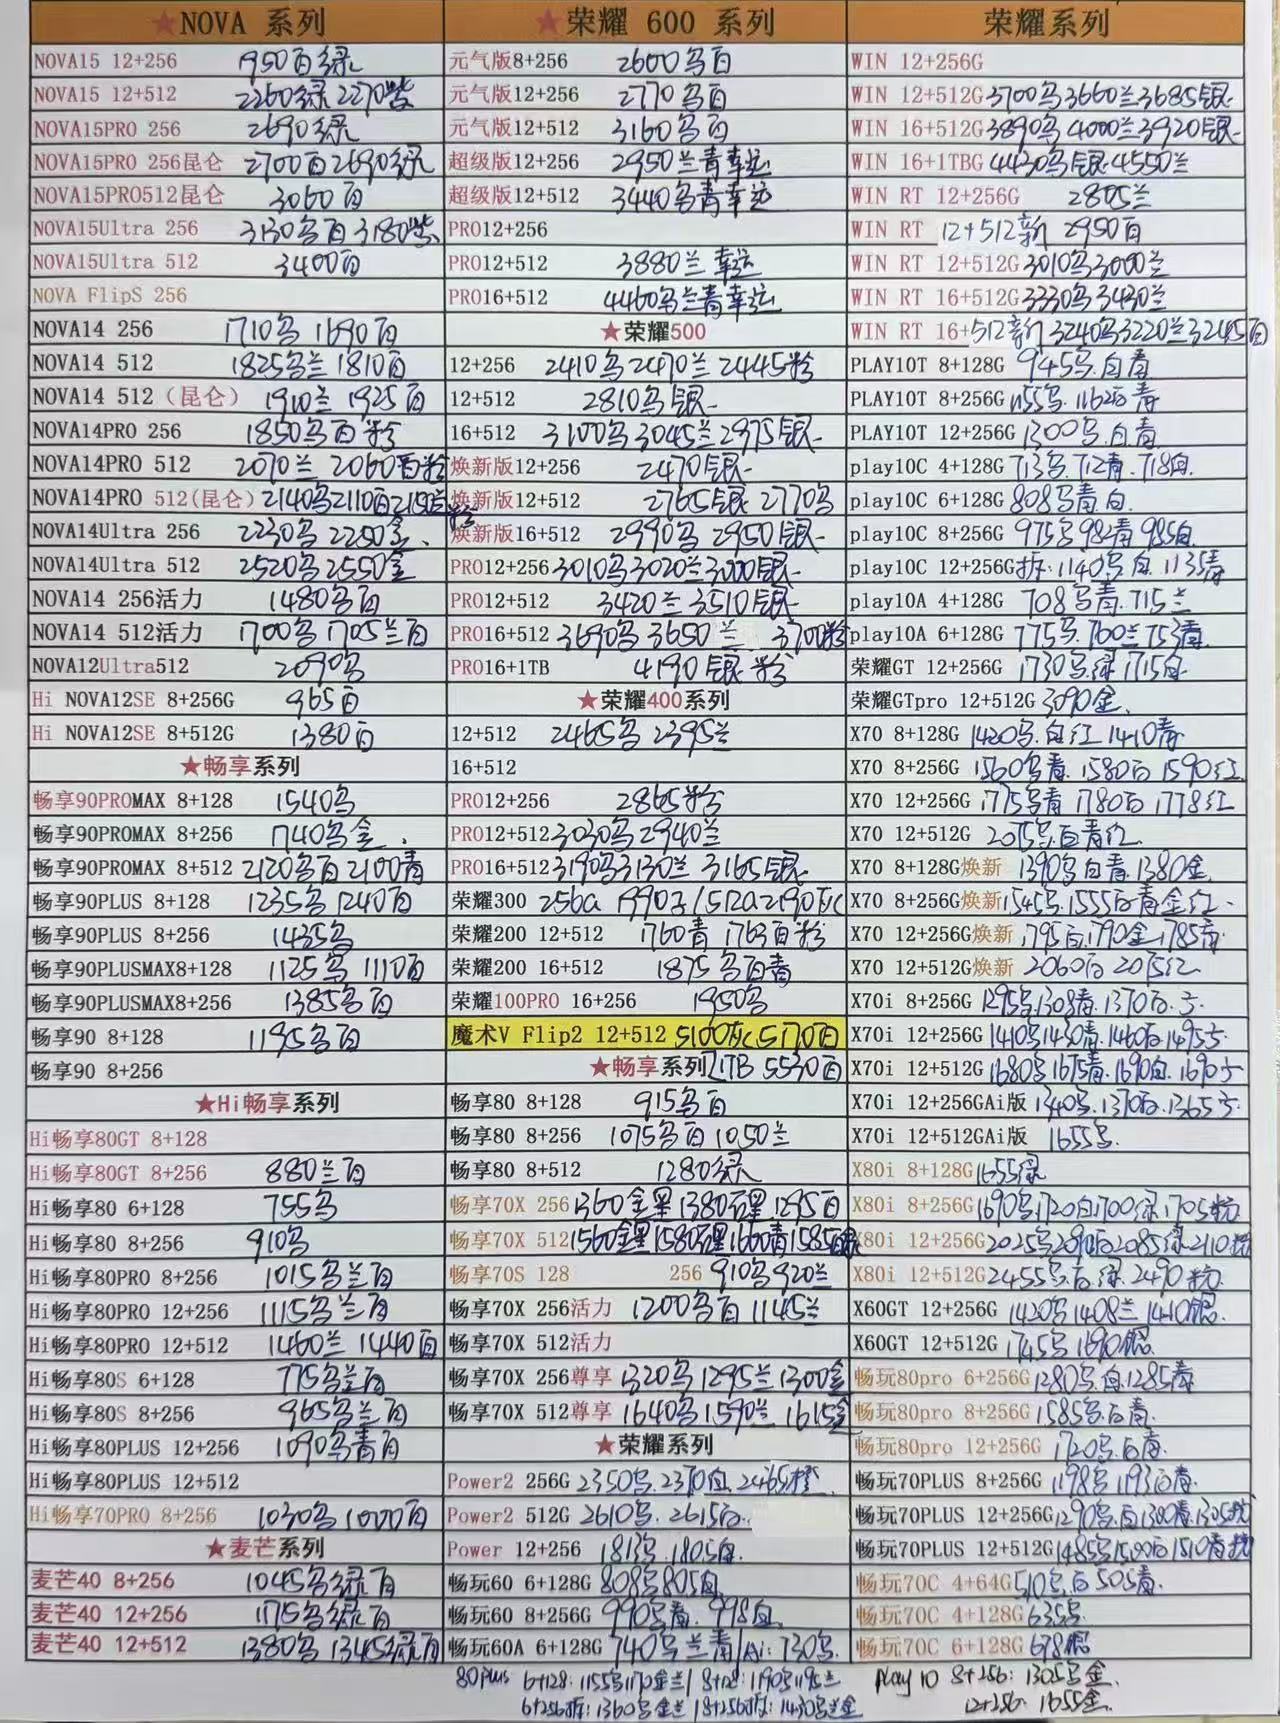 ★NOVA 系列
NOVA15 12+256 1950百绿
NOVA15 12+512 2260绿 2270紫
NOVA15PRO 256 2690绿
NOVA15PRO 256昆仑 2700百2690绿
NOVA15PRO512昆仑 3060百
NOVA15Ultra 256 3130乌百 3180紫
NOVA15Ultra 512 3400百
NOVA FlipS 256
NOVA14 256 1710乌 1690百
NOVA14 512 1825乌兰 1810百
NOVA14 512（昆仑） 1910兰 1925百
NOVA14PRO 256 1850乌百粉
NOVA14PRO 512 2070兰 2060百粉
NOVA14PRO 512(昆仑) 2140乌2110百2150兰粉
NOVA14Ultra 256 2230乌 2250金
NOVA14Ultra 512 2520乌 2550金
NOVA14 256活力 1480乌百
NOVA14 512活力 1700乌 1705兰百
NOVA12Ultra512 2090乌
Hi NOVA12SE 8+256G 965百
Hi NOVA12SE 8+512G 1380百
★畅享系列
畅享90PROMAX 8+128 1540乌
畅享90PROMAX 8+256 1740乌金
畅享90PROMAX 8+512 2120乌百 2100青
畅享90PLUS 8+128 1235乌 1240百
畅享90PLUS 8+256 1435乌
畅享90PLUSMAX8+128 1125乌 1110百
畅享90PLUSMAX8+256 1385乌百
畅享90 8+128 1195乌百
畅享90 8+256
★Hi畅享系列
Hi畅享80GT 8+128
Hi畅享80GT 8+256 880兰百
Hi畅享80 6+128 755乌
Hi畅享80 8+256 910乌
Hi畅享80PRO 8+256 1015乌兰百
Hi畅享80PRO 12+256 1115乌兰百
Hi畅享80PRO 12+512 1460兰 1440百
Hi畅享80S 6+128 775乌兰百
Hi畅享80S 8+256 965乌兰百
Hi畅享80PLUS 12+256 1090乌青百
Hi畅享80PLUS 12+512
Hi畅享70PRO 8+256 1030乌 1000百
★麦芒系列
麦芒40 8+256 1045乌绿百
麦芒40 12+256 1175乌绿百
麦芒40 12+512 1380乌 1345绿百
★荣耀 600 系列
元气版8+256 2600乌百
元气版12+256 2770乌百
元气版12+512 3160乌百
超级版12+256 2950兰青幸运
超级版12+512 3440乌青幸运
PRO12+256
PRO12+512 3880兰 幸运
PRO16+512 4460乌兰青幸运
★荣耀500
12+256 2410乌2470兰 2445粉
12+512 2810乌银
16+512 3100乌 3045兰2975银
焕新版12+256 2470银
焕新版12+512 2765银 2770乌
焕新版16+512 2990乌 2950银
PRO12+256 3010乌3020兰3000银
PRO12+512 3420兰 3510银
PRO16+512 3690乌 3650兰 3700粉
PRO16+1TB 4190银 粉
★荣耀400系列
12+512 2465乌 2395兰
16+512
PRO12+256 2865粉
PRO12+512 3030乌 2940兰
PRO16+512 3190乌3130兰 3165银
荣耀300 256a 1990 /512a2190灰
荣耀200 12+512 1760青 1763百粉
荣耀200 16+512 1875乌百青
荣耀100PRO 16+256 1950乌
魔术V Flip2 12+512 5100灰 5170百
★畅享系列 1TB 5530百
畅享80 8+128 915乌百
畅享80 8+256 1075乌百 1050兰
畅享80 8+512 1280绿
畅享70X 256 1360金星 1380 1295百
畅享70X 512 1560金星 1580 1600青1585
畅享70S 128 256 910乌 920兰
畅享70X 256活力 1200乌百 1145兰
畅享70X 512活力
畅享70X 256尊享 1320乌 1295兰 1300金
畅享70X 512尊享 1640乌 1590兰 1615金
★荣耀系列
Power2 256G 2350乌. 2370白. 2465橙
Power2 512G 2610乌. 2615白.
Power 12+256 1813乌. 1805白.
畅玩60 6+128G 808乌805白
畅玩60 8+256G 990乌青. 998白
畅玩60A 6+128G 740乌兰青/Ai: 730乌
80plus 6+128: 1155乌1170金兰/ 8+128: 1190乌1195兰
6+256拆: 1360乌金兰/8+256拆: 1430乌兰金
荣耀系列
WIN 12+256G
WIN 12+512G 3700乌3660兰3685银
WIN 16+512G 3890乌 4000兰3920银
WIN 16+1TBG 4430乌银4550兰
WIN RT 12+256G 2805兰
WIN RT 12+512新 2950百
WIN RT 12+512G 3010乌3000兰
WIN RT 16+512G 3330乌3430兰
WIN RT 16+512新 3240乌3220兰3245百
PLAY10T 8+128G 945乌.白青
PLAY10T 8+256G 1155乌. 1162白青
PLAY10T 12+256G 1300乌.白青
play10C 4+128G 713乌.712青.718白
play10C 6+128G 808乌青.白
play10C 8+256G 975乌 982青 985白
play10C 12+256G 拆:1140乌白.1135青
play10A 4+128G 708乌青.715兰
play10A 6+128G 775乌.760兰753青
荣耀GT 12+256G 1730乌.绿 1715白
荣耀GTpro 12+512G 3090金
X70 8+128G 1420乌.白红 1410青
X70 8+256G 1560乌青. 1580白 1590红
X70 12+256G 1775乌青 1780白 1778红
X70 12+512G 2075乌.白青红
X70 8+128G焕新 1390乌白青.1380金
X70 8+256G焕新 1545乌.1555白青金红
X70 12+256G焕新 1795白1790金.1785青
X70 12+512G焕新 2060白 2075红
X70i 8+256G 1295乌1308青.1370白.
X70i 12+256G 1410乌1430青.1460白1495
X70i 12+512G 1680乌1675青.1690白.1690
X70i 12+256GAi版 1340乌.1370白.1365
X70i 12+512GAi版 1655乌
X80i 8+128G 1655绿
X80i 8+256G 1690乌1720白1700绿.1705粉
X80i 12+256G 2025乌2090白2085绿2110粉
X80i 12+512G 2455乌.白.绿.2490粉
X60GT 12+256G 1420乌1408兰 1410银
X60GT 12+512G 1745乌1690银
畅玩80pro 6+256G 1280乌.白.1285青
畅玩80pro 8+256G 1585乌.白青
畅玩80pro 12+256G 1720乌.白青
畅玩70PLUS 8+256G 1198乌 1193白青
畅玩70PLUS 12+256G 1290乌.白1300青.1305粉
畅玩70PLUS 12+512G 1485乌1500白1510青粉
畅玩70C 4+64G 510乌.白 505青
畅玩70C 4+128G 635乌
畅玩70C 6+128G 678银
play 10 8+256: 1305乌金.
12+256: 1655金.